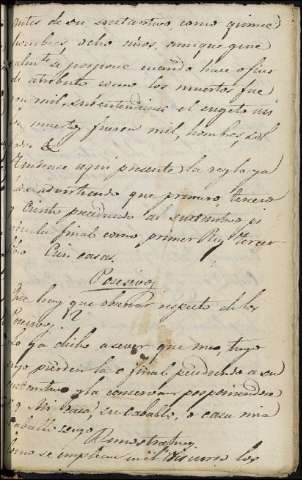 antes de su sustantivo, como quince
hombres, ocho niños, aunque que
se pospone cuando hace oficio
de atributo como los muertos fue
ron mil, sustentiendose el sugeto asi
muertos fueron mil, hombres, sol
&
aqui presente la regla ya
advirtiendo que primero, tercero
y ciento precediendo al sustantivo
final como primer Rey, tercer
Cien casas.
Posesivos
hay que observar respecto de los
Posesivos?
ya dicho a saver que mio, tuyo
suyo pierden la o final precediendo a su
sustantivo y la conservan posponiendose
Mi casa, su caballo, o casa mia
caballo suyo
Demostrativos
como se emplean en el discurso los